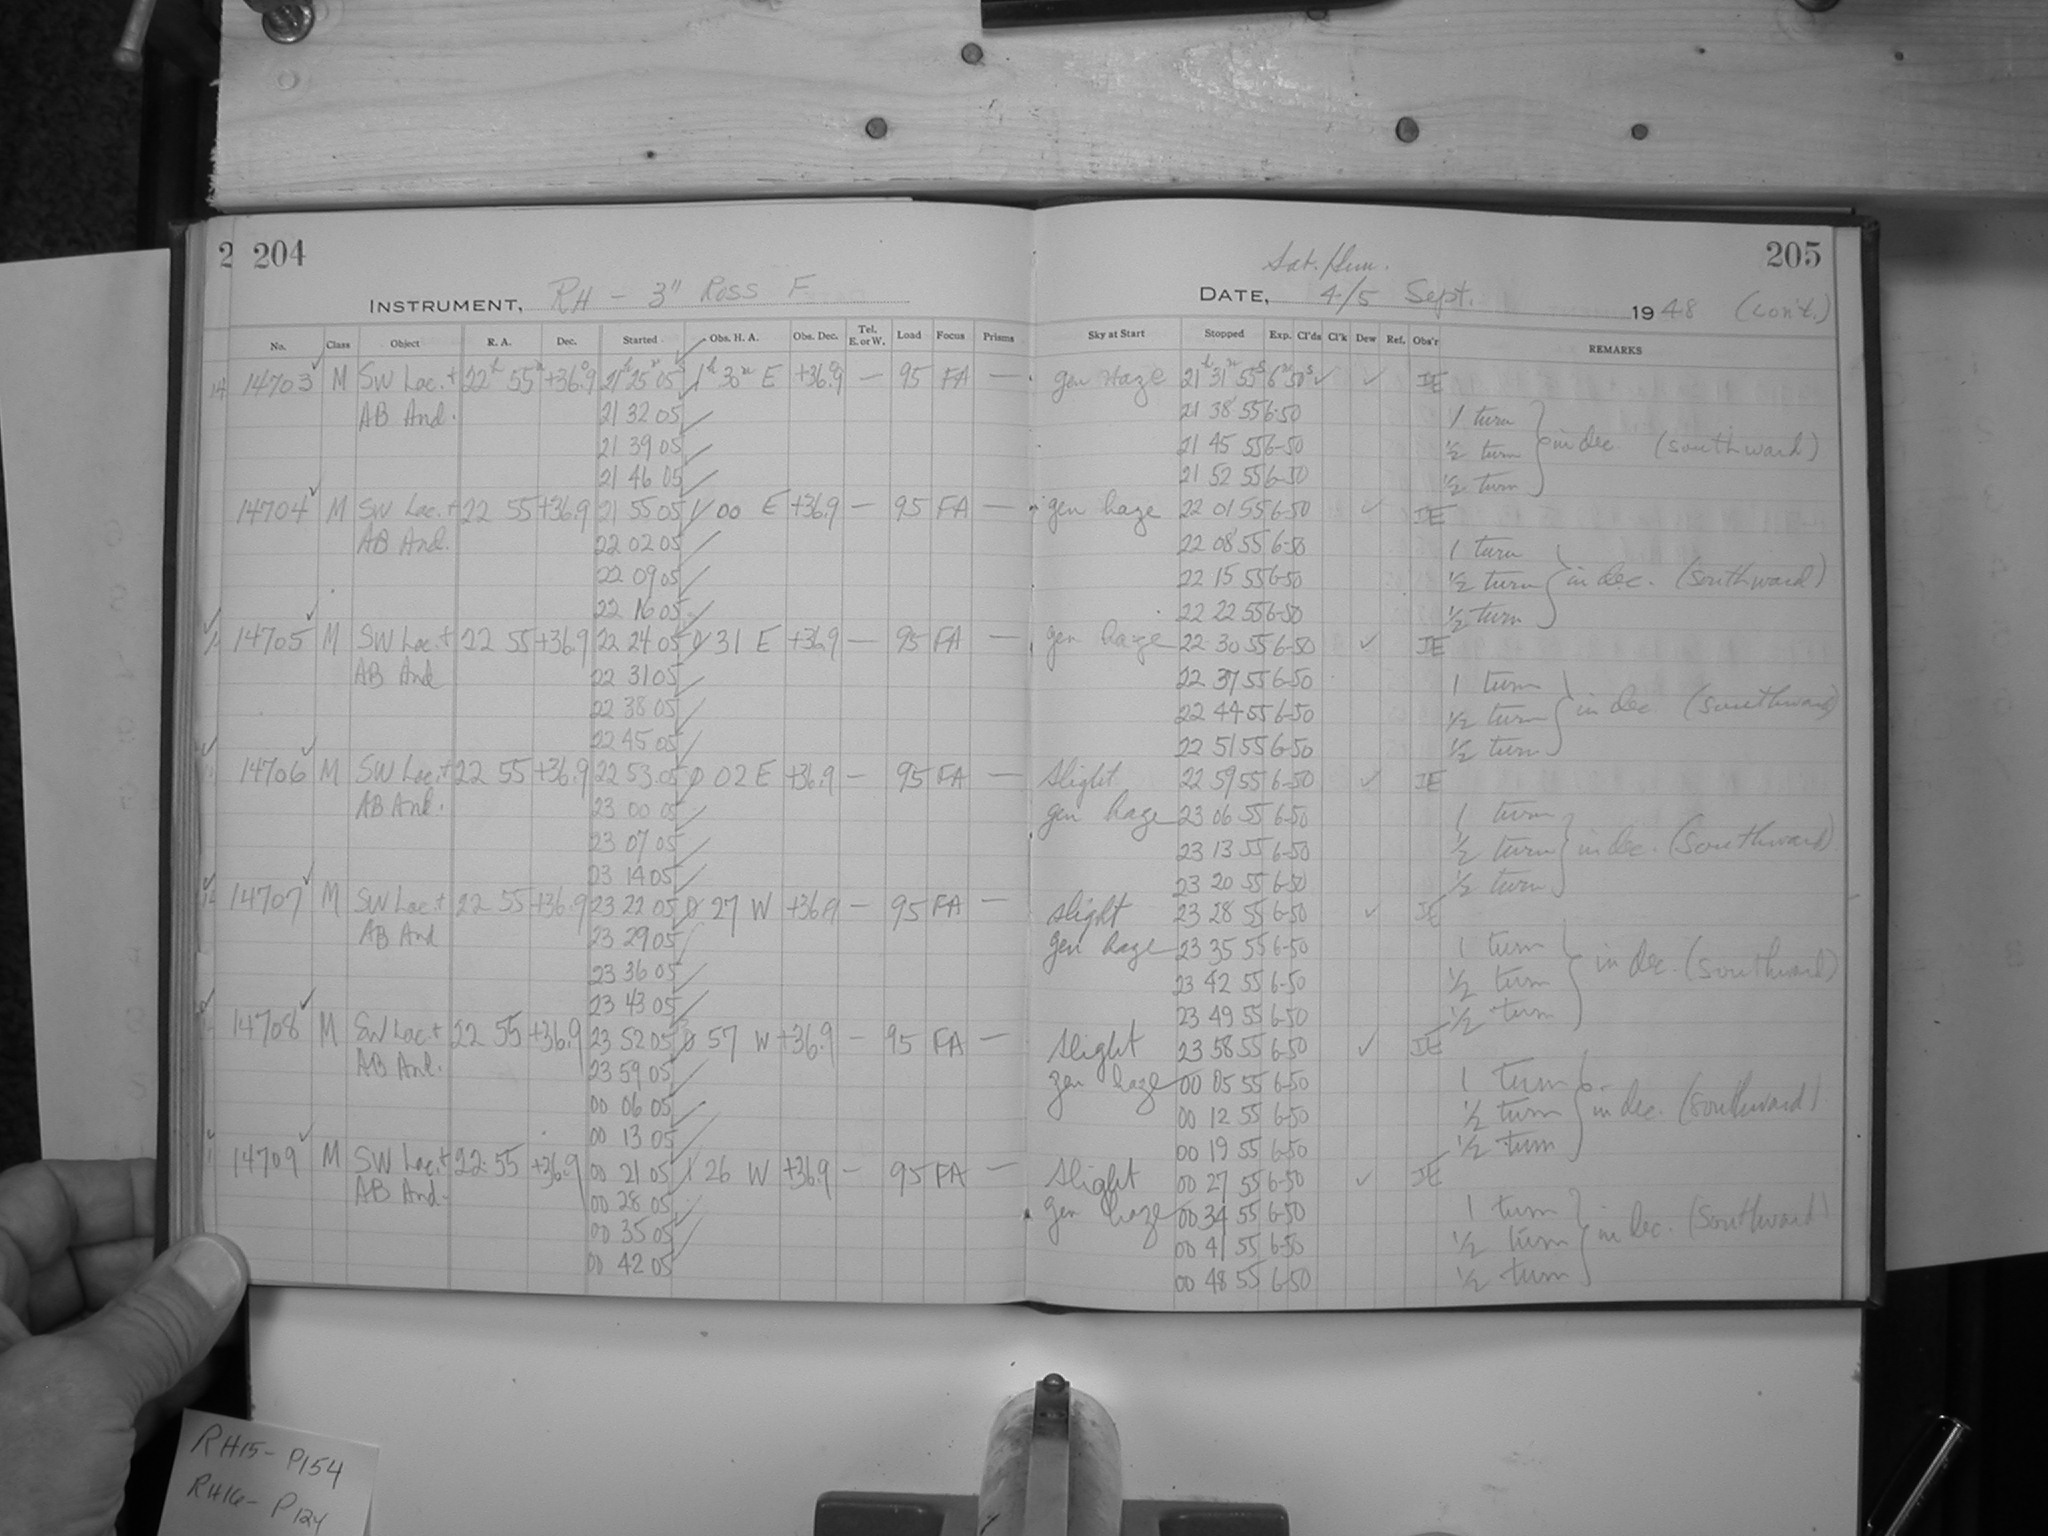 2 204
INSTRUMENT, RH - 3" Ross F
Sat./Sun. 205
DATE, 4/5 Sept. 1948 (con't.)
No. Class Object R. A. Dec. Started Obs. H. A. Obs. Dec. Tel. E. or W. Load Focus Prisms Sky at Start Stopped Exp. Cl'ds Cl'k Dew Ref. Obs'r REMARKS
14 14703 ✓ M SW Lac. + 22h 55m +36.°9 21h 25m 05s 1h 30m E +36.°9 — 95 FA — gen Haze 21h 31m 55s 6m50s ✓ ✓ IE
AB And. 21 32 05 21 38 55 6-50 1 turn
21 39 05 21 45 55 6-50 ½ turn } in dec. (southward)
21 46 05 21 52 55 6-50 ½ turn
14704 ✓ M SW Lac. + 22 55 +36.9 21 55 05 1 00 E +36.9 — 95 FA — gen haze 22 01 55 6-50 ✓ IE
AB And. 22 02 05 22 08 55 6-50 1 turn
22 09 05 22 15 55 6-50 ½ turn } in dec. (southward)
22 16 05 22 22 55 6-50 ½ turn
14705 ✓ M SW Lac. + 22 55 +36.9 22 24 05 0 31 E +36.9 — 95 FA — gen haze 22 30 55 6-50 ✓ IE
AB And 22 31 05 22 37 55 6-50 1 turn
22 38 05 22 44 55 6-50 ½ turn } in dec (southward)
22 45 05 22 51 55 6-50 ½ turn
14706 ✓ M SW Lac. + 22 55 +36.9 22 53 05 0 02 E +36.9 — 95 FA — slight 22 59 55 6-50 ✓ IE
AB And. 23 00 05 gen haze 23 06 55 6-50 1 turn
23 07 05 23 13 55 6-50 ½ turn } in dec. (southward)
23 14 05 23 20 55 6-50 ½ turn
14707 ✓ M SW Lac. + 22 55 +36.9 23 22 05 0 27 W +36.9 — 95 FA — slight 23 28 55 6-50 ✓ IE
AB And 23 29 05 gen haze 23 35 55 6-50 1 turn
23 36 05 23 42 55 6-50 ½ turn } in dec. (southward)
23 43 05 23 49 55 6-50 ½ turn
14708 ✓ M SW Lac. + 22 55 +36.9 23 52 05 0 57 W +36.9 — 95 FA — slight 23 58 55 6-50 ✓ IE
AB And. 23 59 05 gen haze 00 05 55 6-50 1 turn
00 06 05 00 12 55 6-50 ½ turn } in dec. (southward)
00 13 05 00 19 55 6-50 ½ turn
14709 ✓ M SW Lac. + 22 55 +36.9 00 21 05 1 26 W +36.9 — 95 FA — slight 00 27 55 6-50 ✓ IE
AB And. 00 28 05 gen haze 00 34 55 6-50 1 turn
00 35 05 00 41 55 6-50 ½ turn } in dec. (southward)
00 42 05 00 48 55 6-50 ½ turn
RH15- P154
RH16- P124